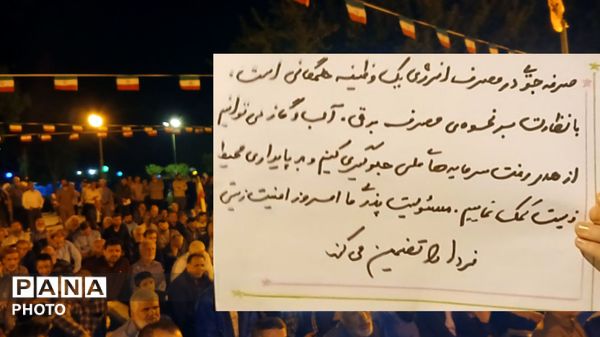 صرفه جویی در مصرف انرژی یک وظیفه همگانی است،
با نظارت بر نحوه‌ی مصرف برق، آب و گاز می توانیم
از هدر رفت سرمایه های ملی جلوگیری کنیم و بر پایداری محیط
زیست کمک نماییم. مسئولیت پذیری ما امروز امنیت زیستی
فردا را تضمین می کند
PANA
PHOTO